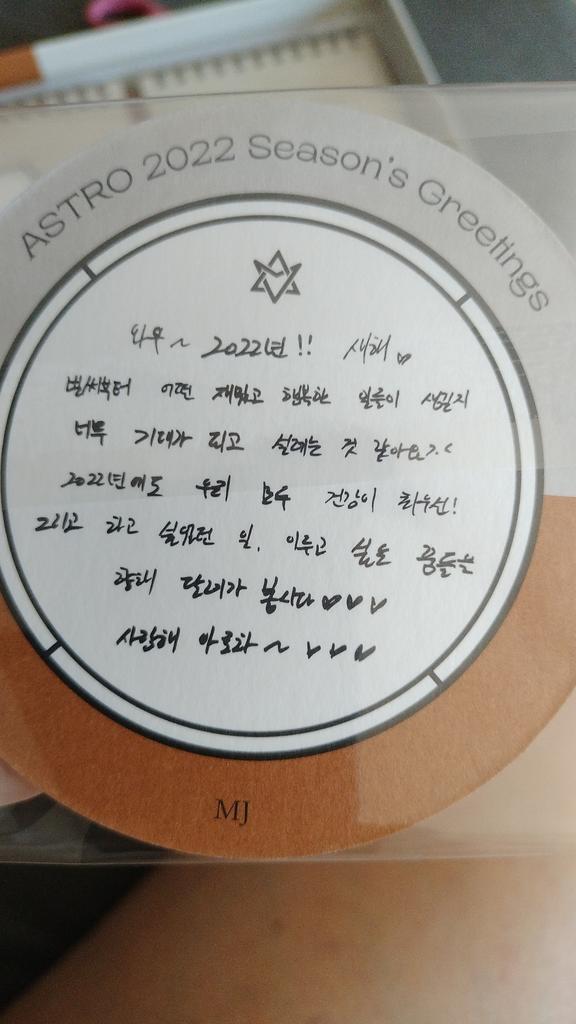 ASTRO 2022 Season's Greetings
와우~ 2022년!! 새해♡
벌써부터 어떤 재밌고 행복한 일들이 생길지
너무 기대가 되고 설레는 것 같아요>.<
2022년에도 우리 모두 건강이 최우선!
그리고 하고 싶었던 일, 이루고 싶은 꿈들을
향해 달려가 봅시다♥♥♥
사랑해 아로하~ ♥♥♥
MJ